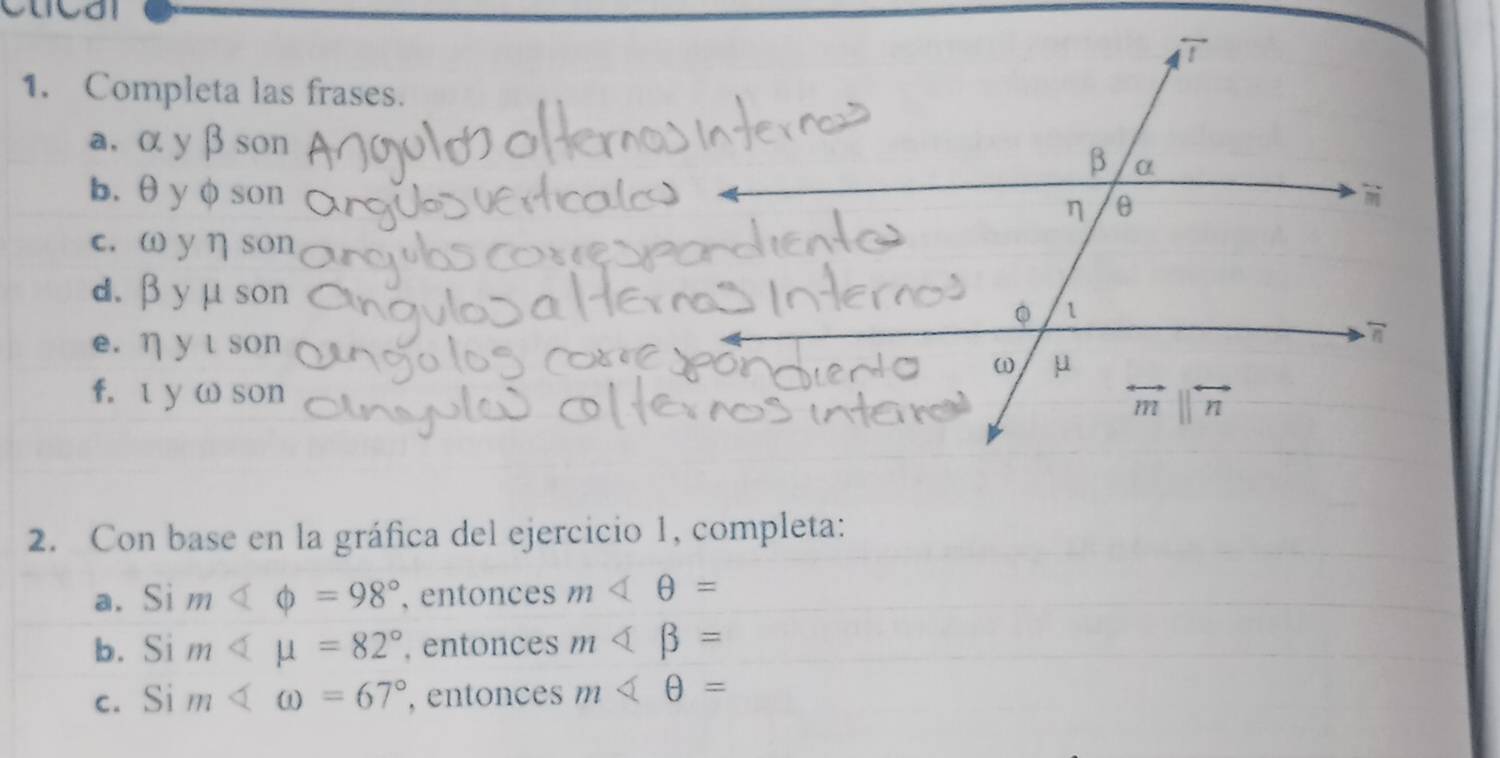 1. Completa las frases.
a. α y β son Angulos alternos internos
b. θ y ϕ son angulos verticales
c. ω y η son angulos correspondientes
d. β y μ son angulos alternos internos
e. η y ι son angolos correspondiento
f. ι y ω son angulos alternos internos
t
β α
m
η θ
ϕ ι
n
ω μ
m || n
2. Con base en la gráfica del ejercicio 1, completa:
a. Si m ∢ ϕ = 98°, entonces m ∢ θ =
b. Si m ∢ μ = 82°, entonces m ∢ β =
c. Si m ∢ ω = 67°, entonces m ∢ θ =